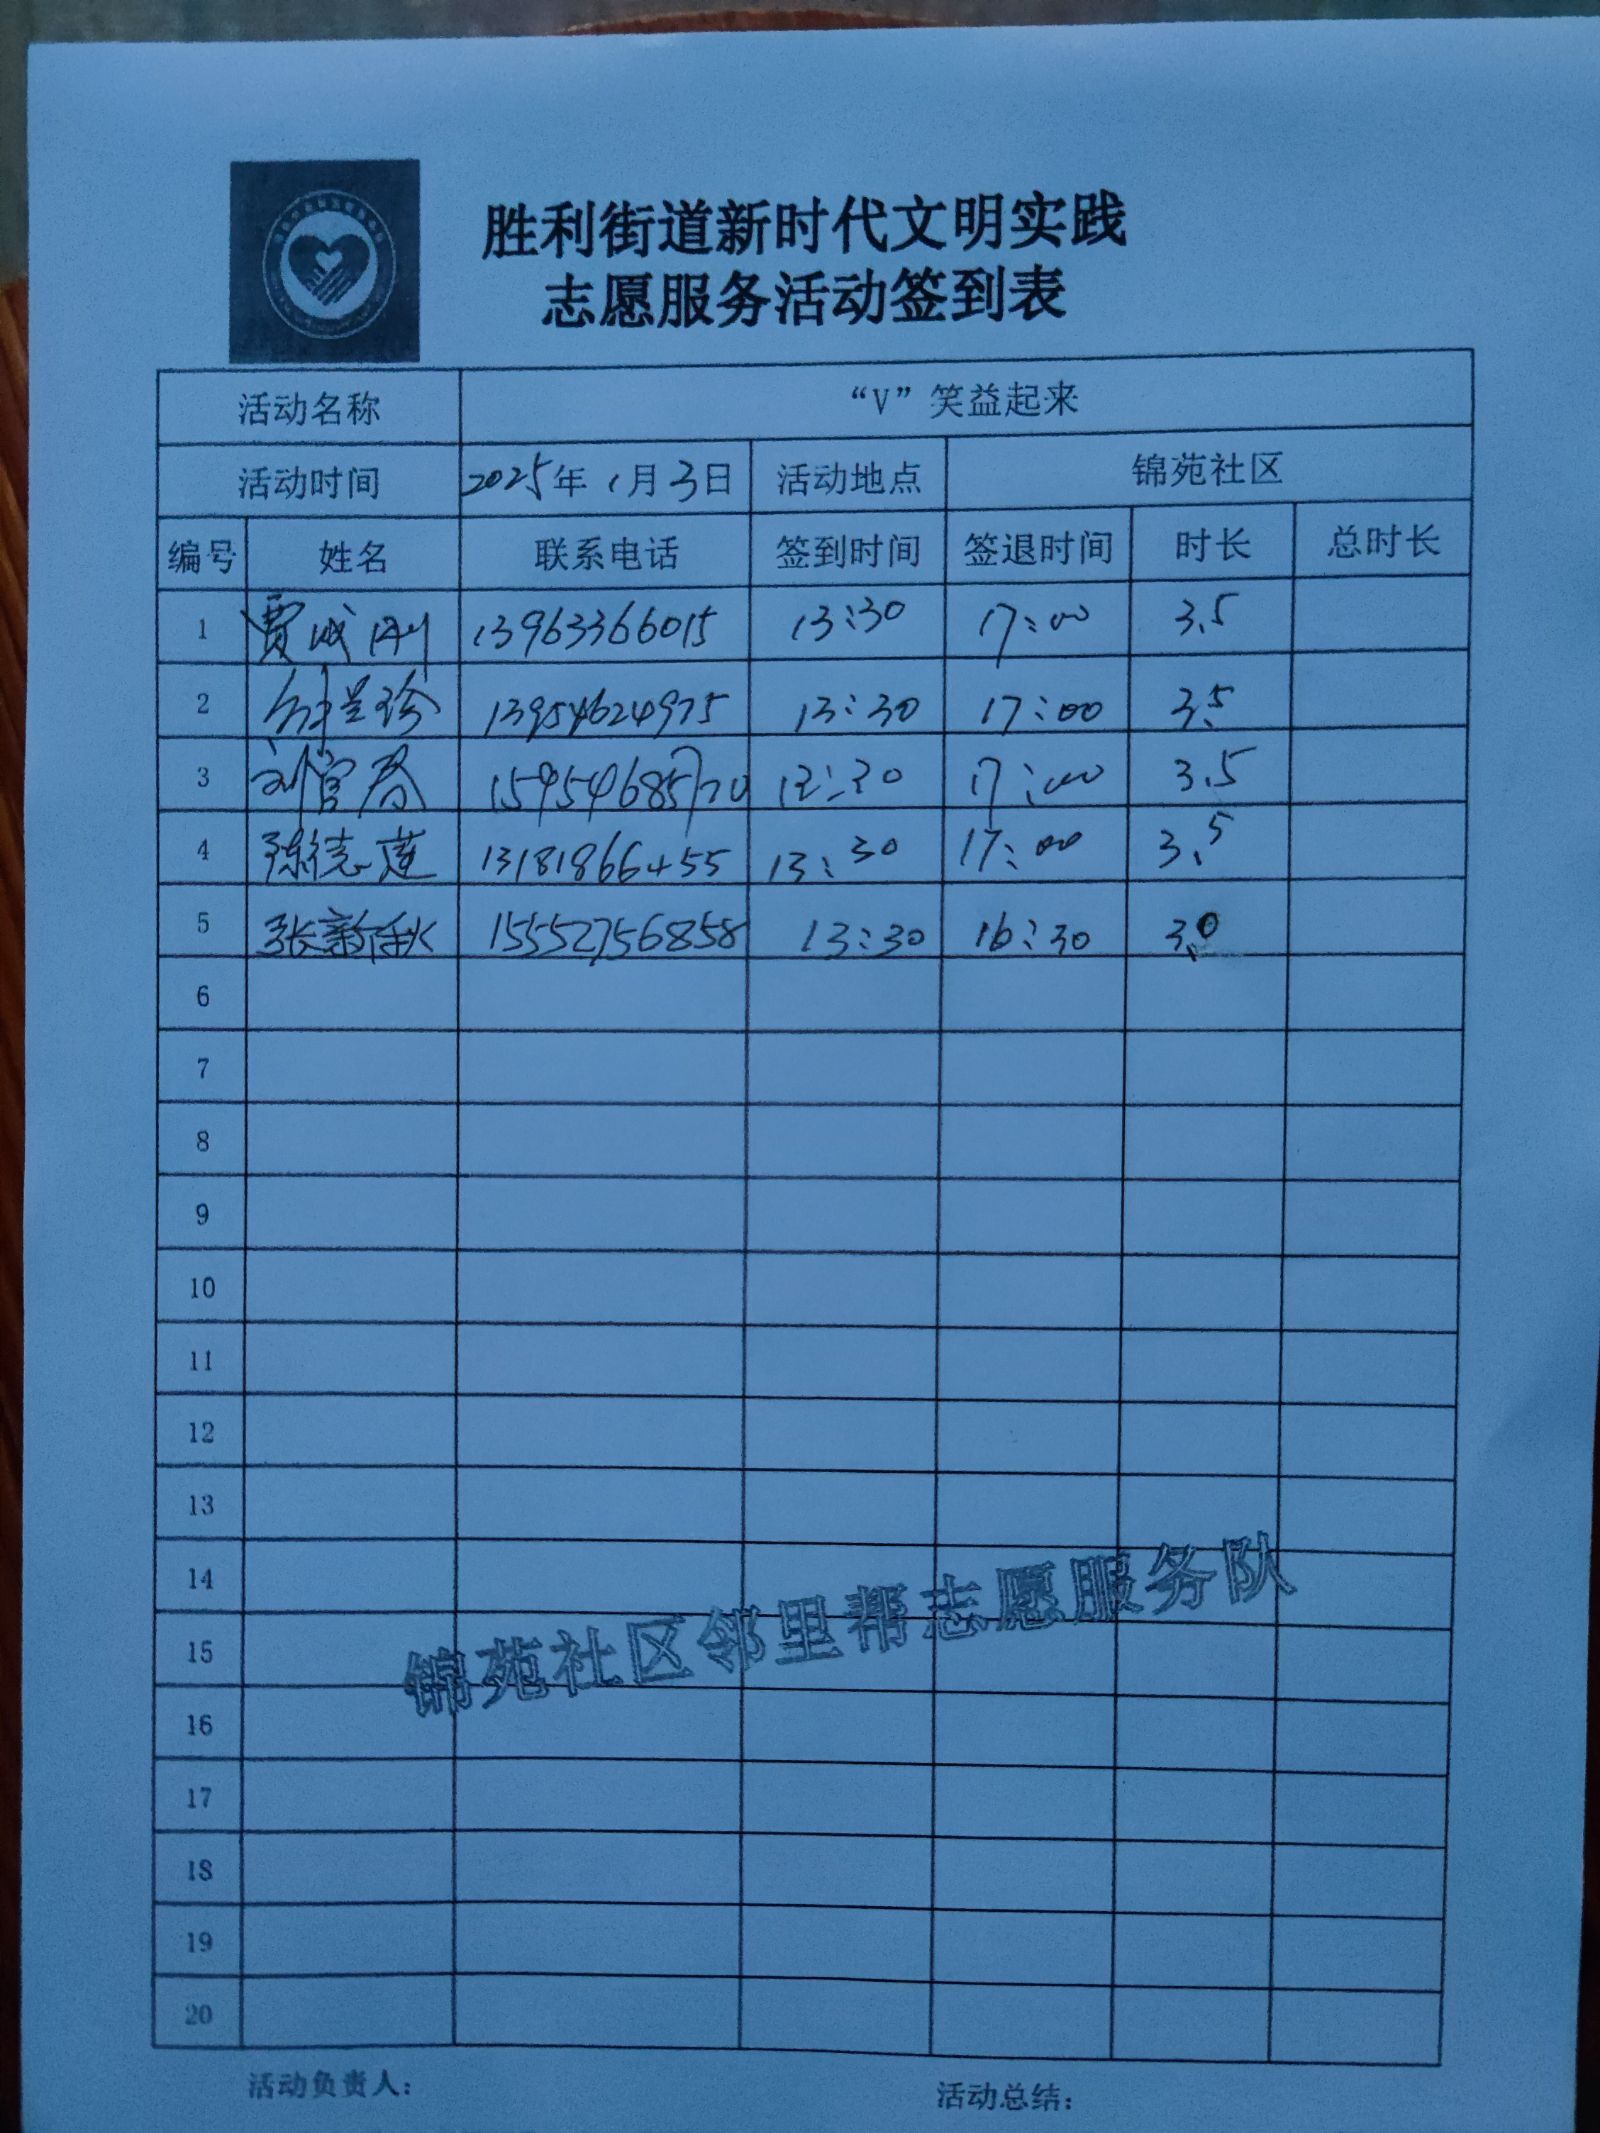 胜利街道新时代文明实践
志愿服务活动签到表
活动名称 “V”笑益起来
活动时间 2025年1月3日 活动地点 锦苑社区
编号 姓名 联系电话 签到时间 签退时间 时长 总时长
1 贾成刚 13963366015 13:30 17:00 3.5
2 13954624975 13:30 17:00 3.5
3 刘官春 13:30 17:00 3.5
4 陈志莲 13181866455 13:30 17:00 3.5
5 张新秋 15552756858 13:30 16:30 3.0
6
7
8
9
10
11
12
13
14
15
16
17
18
19
20
锦苑社区邻里帮志愿服务队
活动负责人: 活动总结: